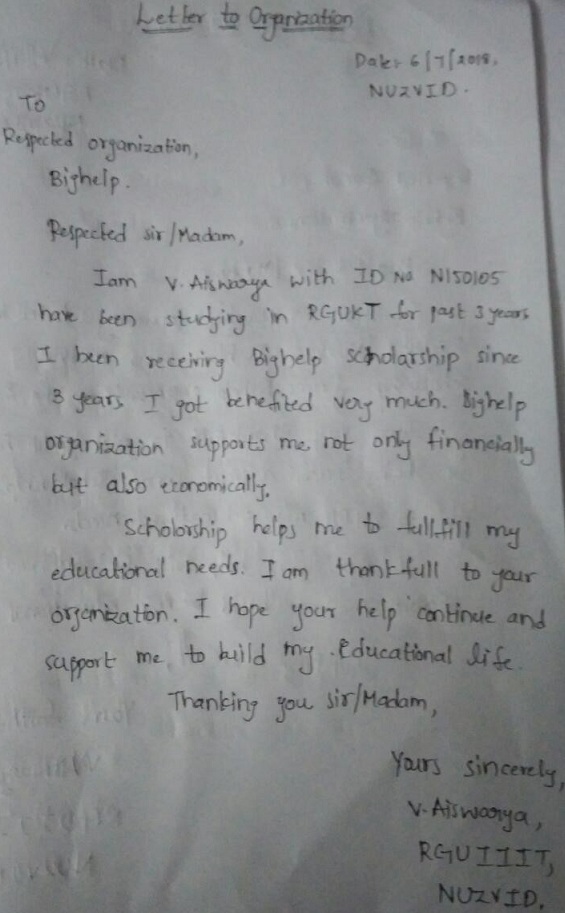 Letter to Organization
Date: 6/7/2018.
NUZVID.
To
Respected organization,
Bighelp.
Respected sir/Madam,
Iam V. Aiswarya with ID No N150105
have been studying in RGUKT for past 3 years
I been receiving Bighelp scholarship since
3 years I got benefited very much. Bighelp
organization supports me not only financially
but also economically.
Scholorship helps me to fullfill my
educational needs. I am thankfull to your
organization. I hope your help continue and
support me to build my Educational life.
Thanking you sir/Madam,
Yours sincerely,
V. Aiswarya,
RGUIIIT,
NUZVID.